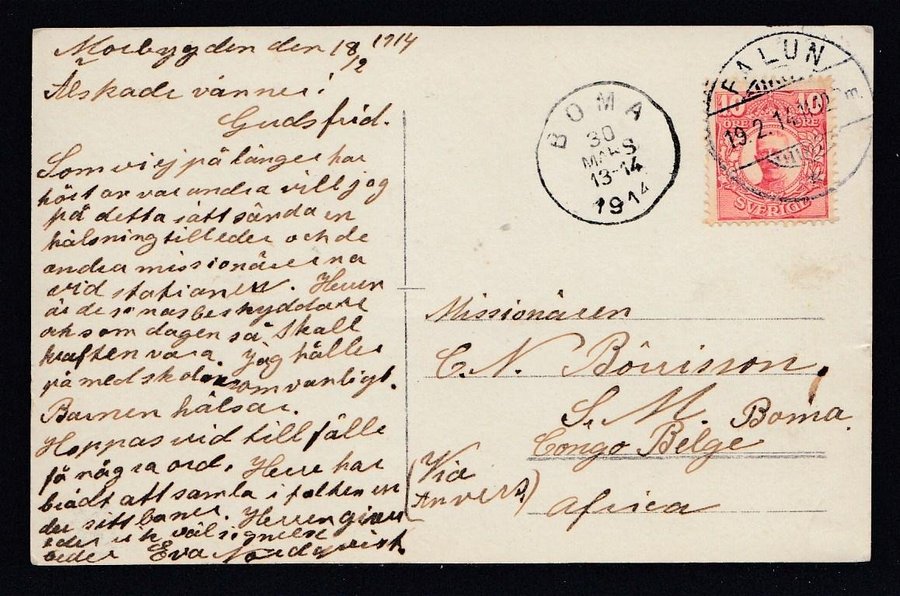 Morbygden den 18/2 1914
Älskade vänner!
Guds frid.
Som vi ej på länge har
hört av varandra vill jag
på detta sätt sända en
hälsning till eder och de
andra missionärerna
vid stationen. Herren
är de sinas beskyddare
och som dagen så skall
kraften vara. Jag håller
på med skolan som vanligt.
Barnen hälsar.
Hoppas vid tillfälle
få några ord. Herre har
brådt att samla i folken
der sitt baner. Herren
eder och välsignelse
önskar Eva Nordqvist
BOMA
30
MARS
13-14
1914
FALUN
19.2.14
10 10
ÖRE ÖRE
SVERIGE
Missionären
C. N. Börrisson,
S. M. Boma.
Congo Belge
(Via
Anvers)
Africa